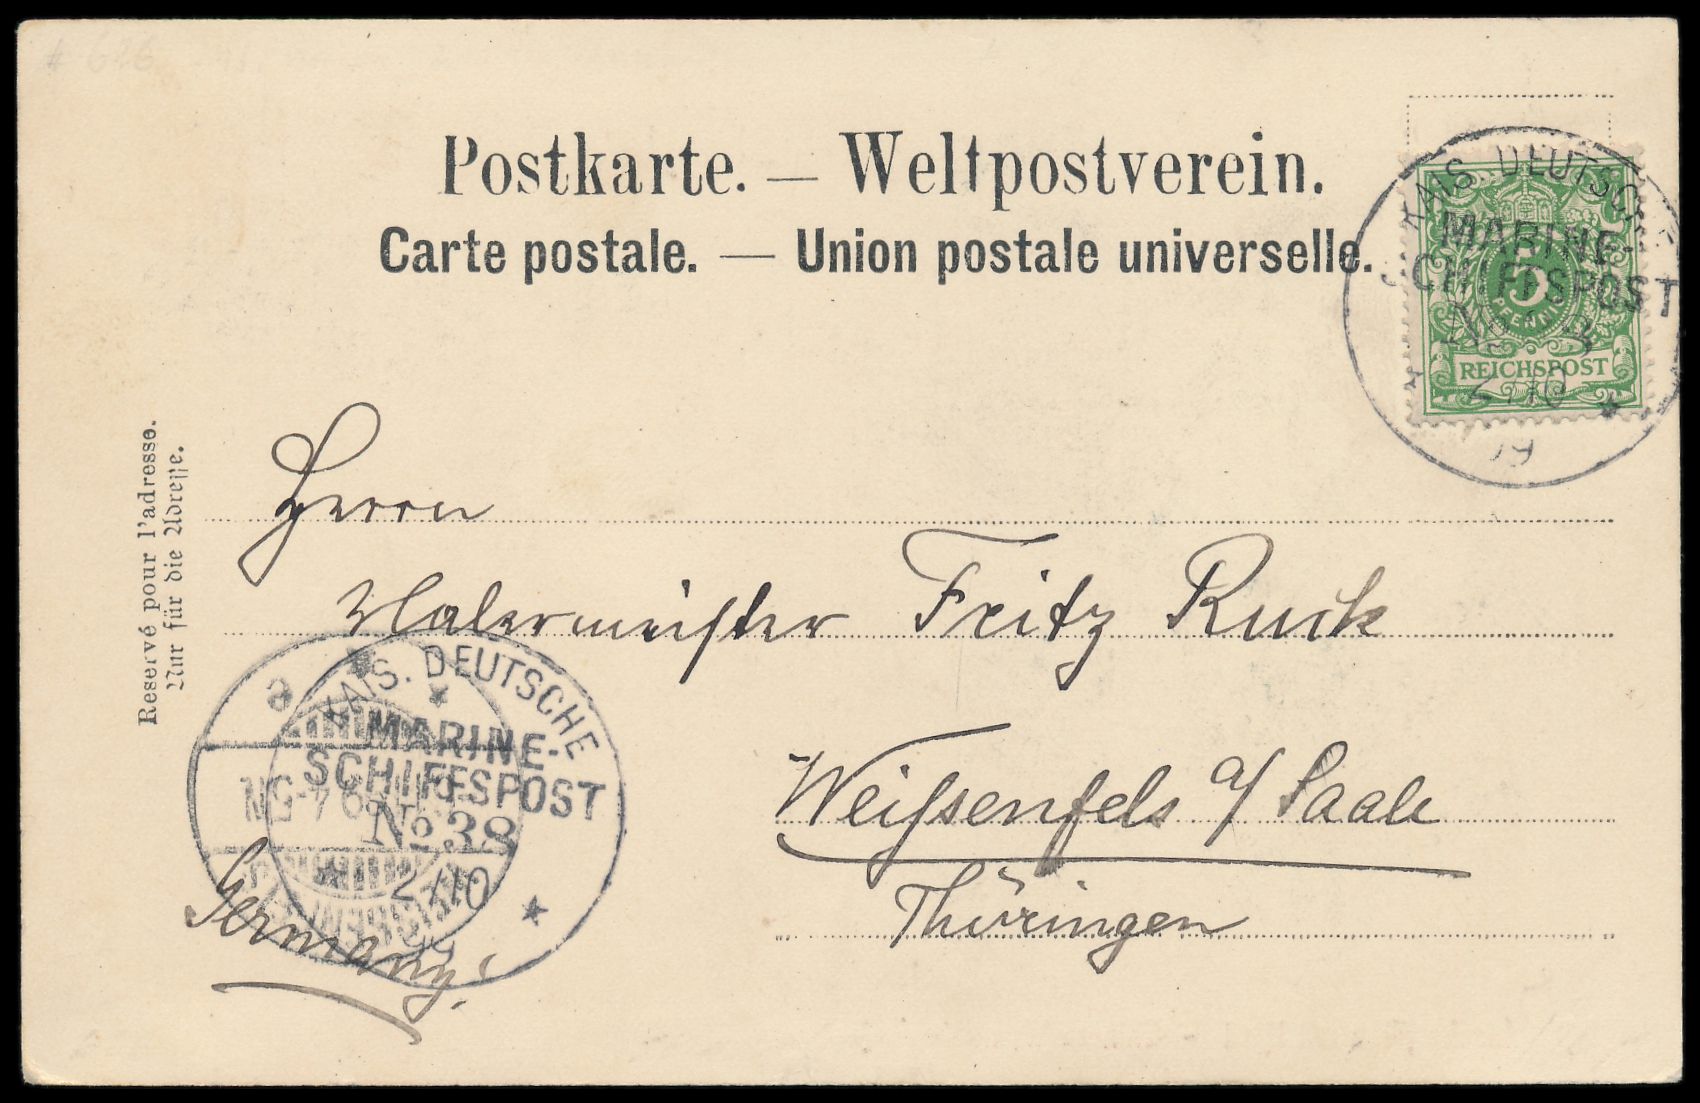 # 626
Postkarte. — Weltpostverein.
Carte postale. — Union postale universelle.
KAIS. DEUTSCHE
MARINE-
SCHIFFSPOST
No 38
2/10
99
5
PFENNIG
REICHSPOST
Reservé pour l'adresse.
Nur für die Adresse.
Herrn
Malermeister Fritz Ruck
Weißenfels a/ Saale
Thüringen
KAIS. DEUTSCHE
MARINE-
SCHIFFSPOST
No 38
2/10
99
Germany!